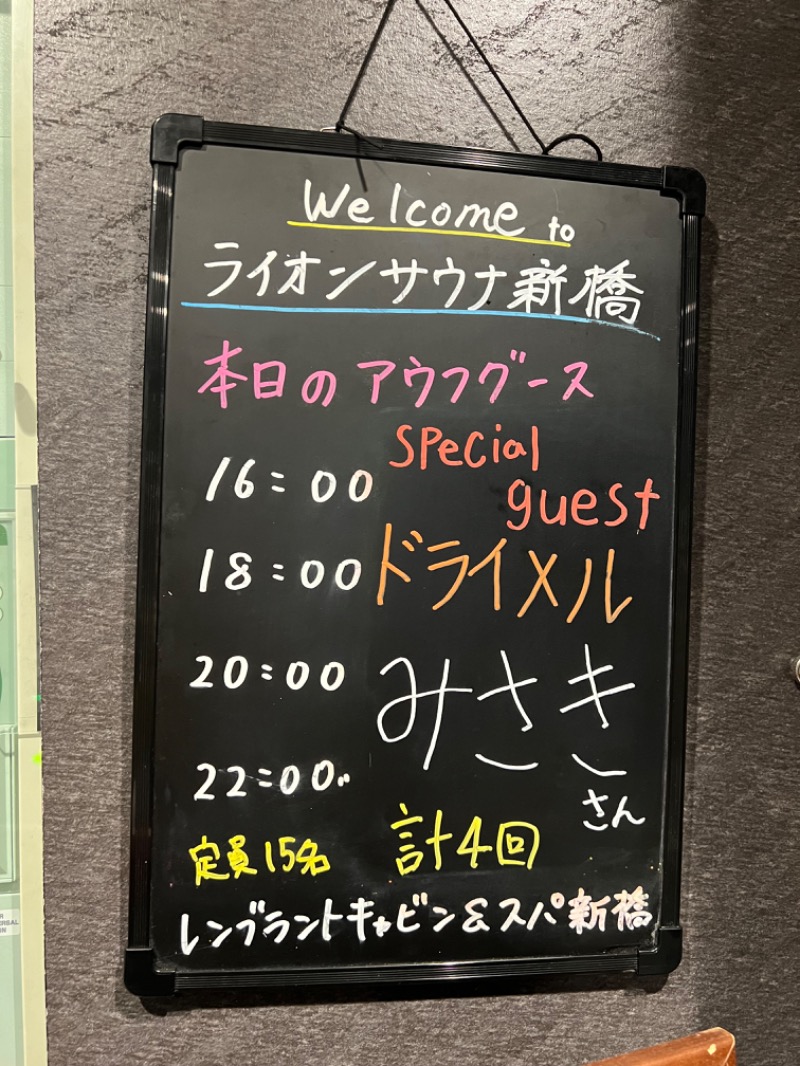 Welcome to
ライオンサウナ新橋
本日のアウフグース
special
guest
16:00
18:00
ドライメル
20:00
みさき
22:00
さん
定員15名
計4回
レンブラントキャビン&スパ新橋